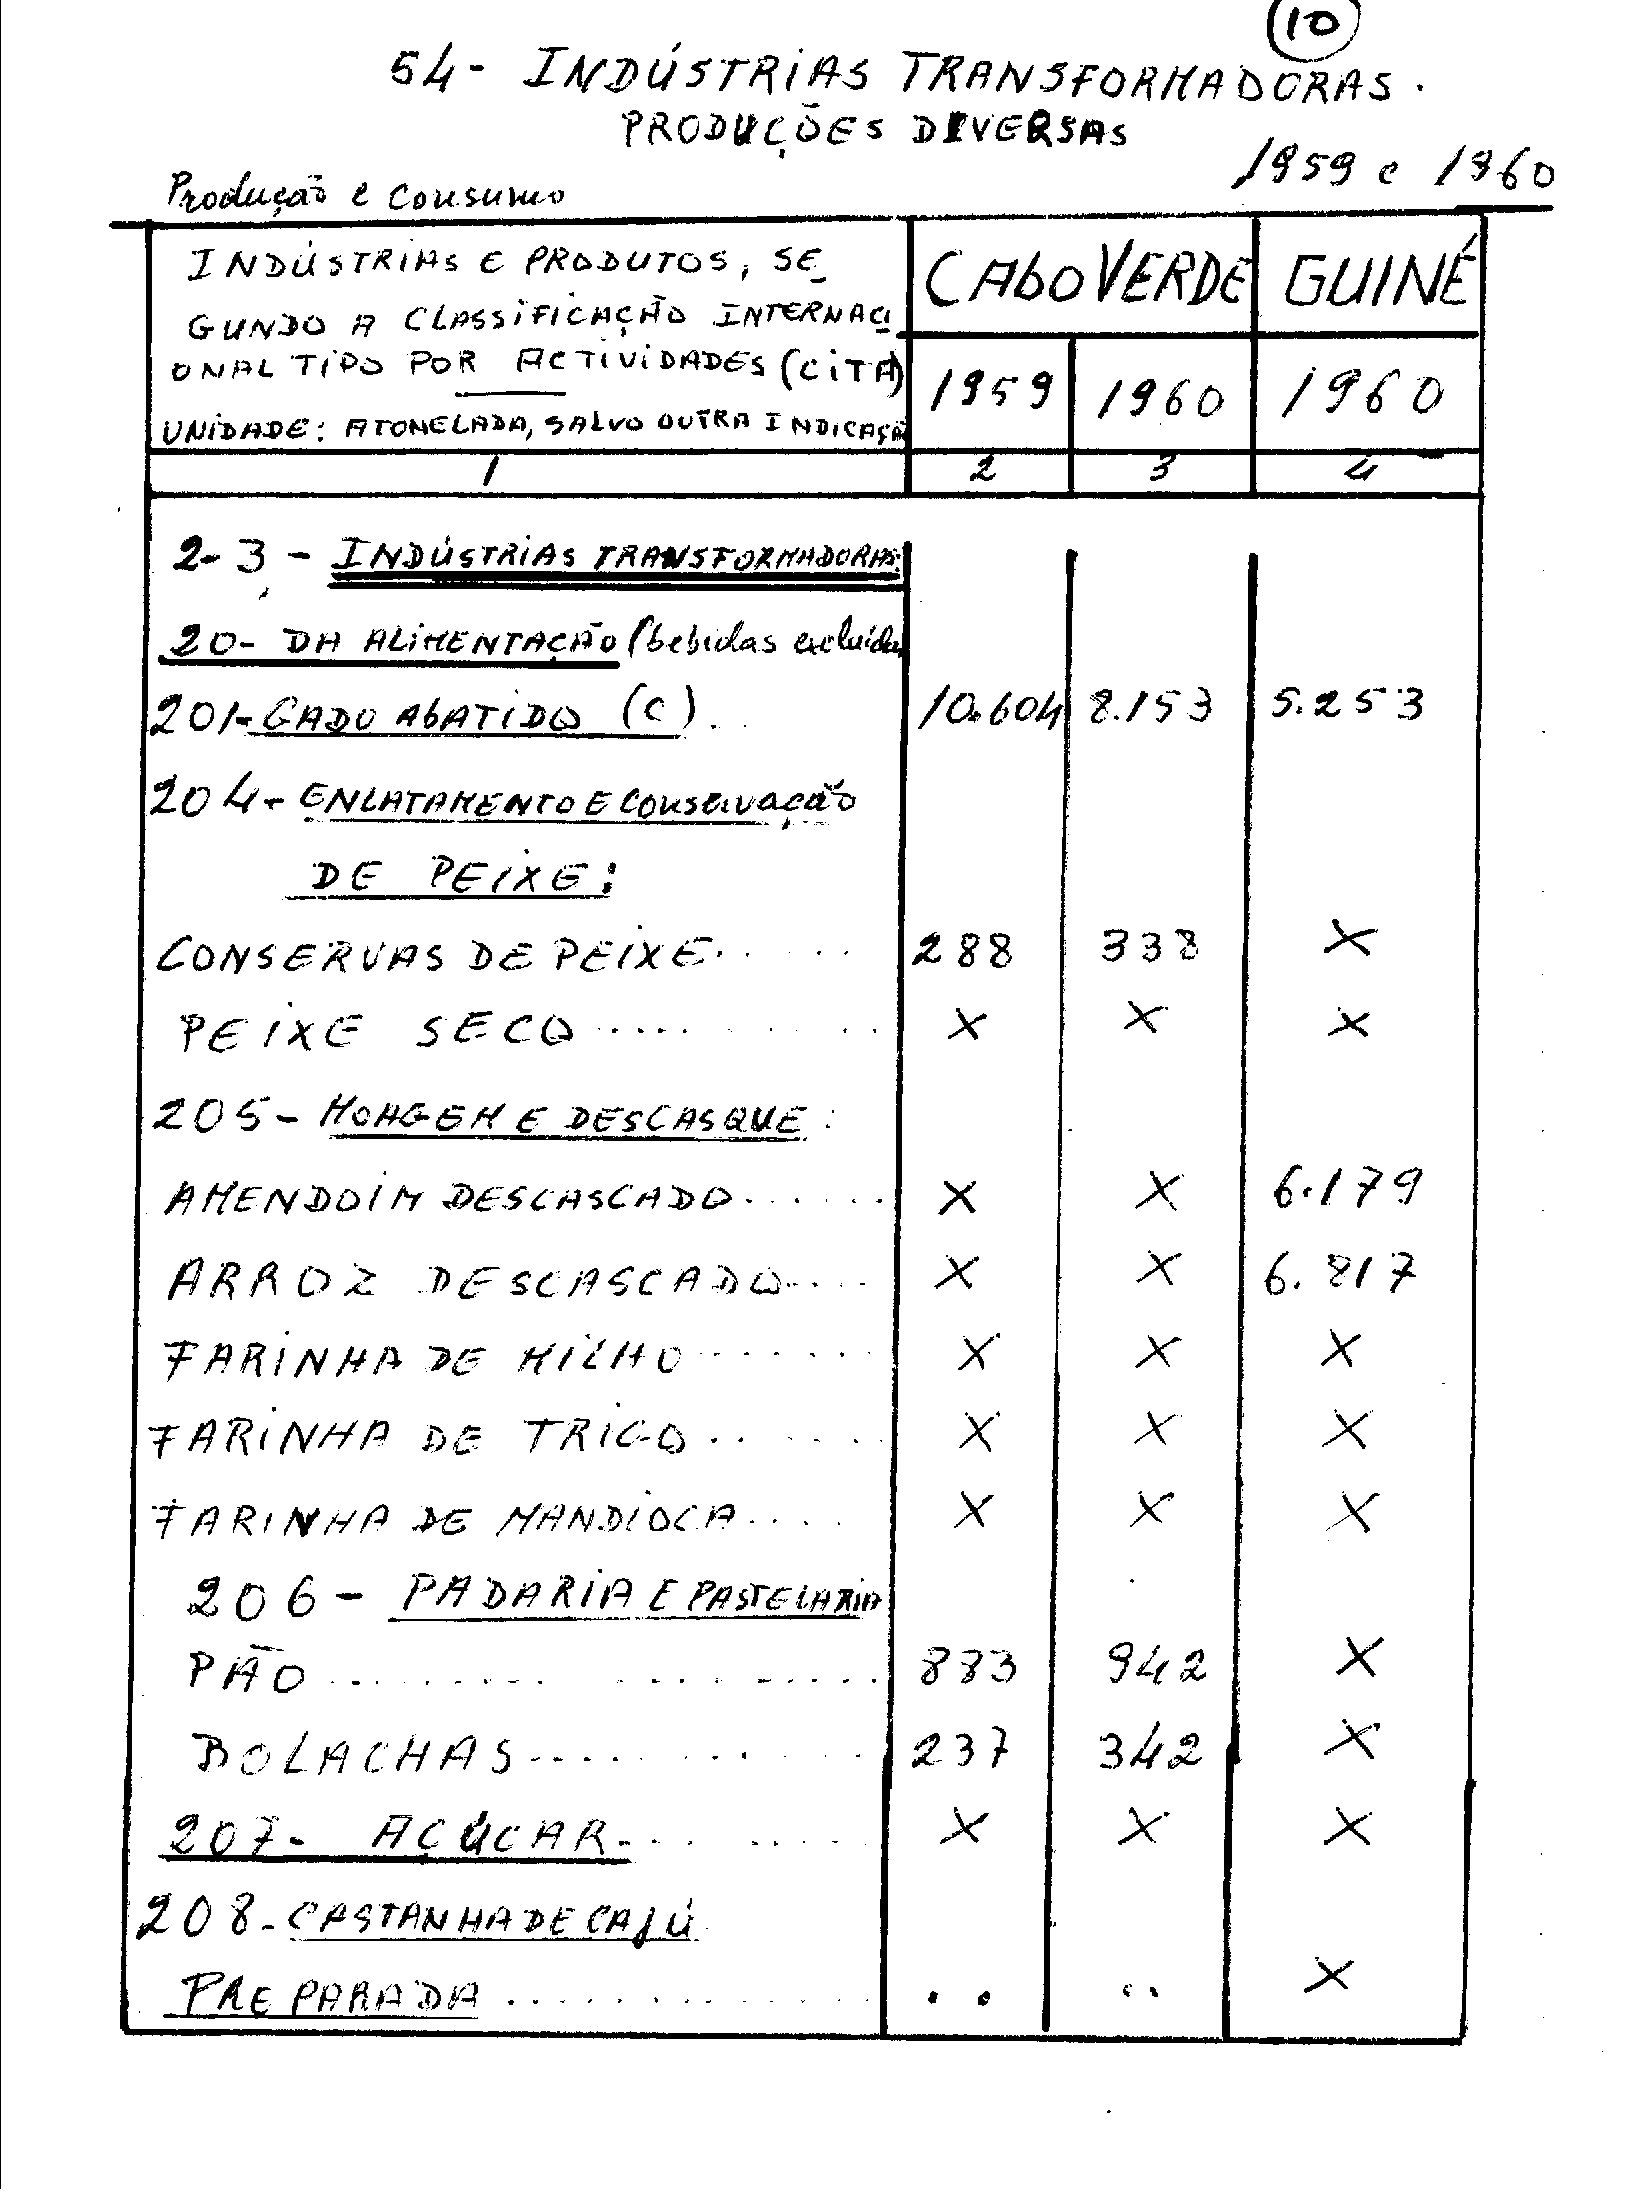 10
54- INDÚSTRIAS TRANSFORMADORAS.
PRODUÇÕES DIVERSAS
1959 e 1960
Produção e Consumo
INDÚSTRIAS E PRODUTOS, SE
GUNDO A CLASSIFICAÇÃO INTERNACI
ONAL TIPO POR ACTIVIDADES (CITA)
UNIDADE: A TONELADA, SALVO OUTRA INDICAÇÃ
CABO VERDE GUINÉ
1959 1960 1960
1 2 3 4
2-3 - INDÚSTRIAS TRANSFORMADORAS:
20- DA ALIMENTAÇÃO (bebidas excluídas
201- GADO ABATIDO (C) . 10.604 8.153 5.253
204- ENLATAMENTO E Conservação
DE PEIXE:
CONSERVAS DE PEIXE...... 288 338 X
PEIXE SECO ........ X X X
205- MOAGEM E DESCASQUE:
AMENDOIM DESCASCADO...... X X 6.179
ARROZ DESCASCADO.... X X 6.817
FARINHA DE MILHO ....... X X X
FARINHA DE TRIGO ...... X X X
FARINHA DE MANDIOCA.... X X X
206 - PADARIA E PASTELARIA
PÃO ................ 883 942 X
BOLACHAS........... 237 342 X
207- AÇÚCAR........ X X X
208- CASTANHA DE CAJÚ
PREPARADA ............. .. .. X